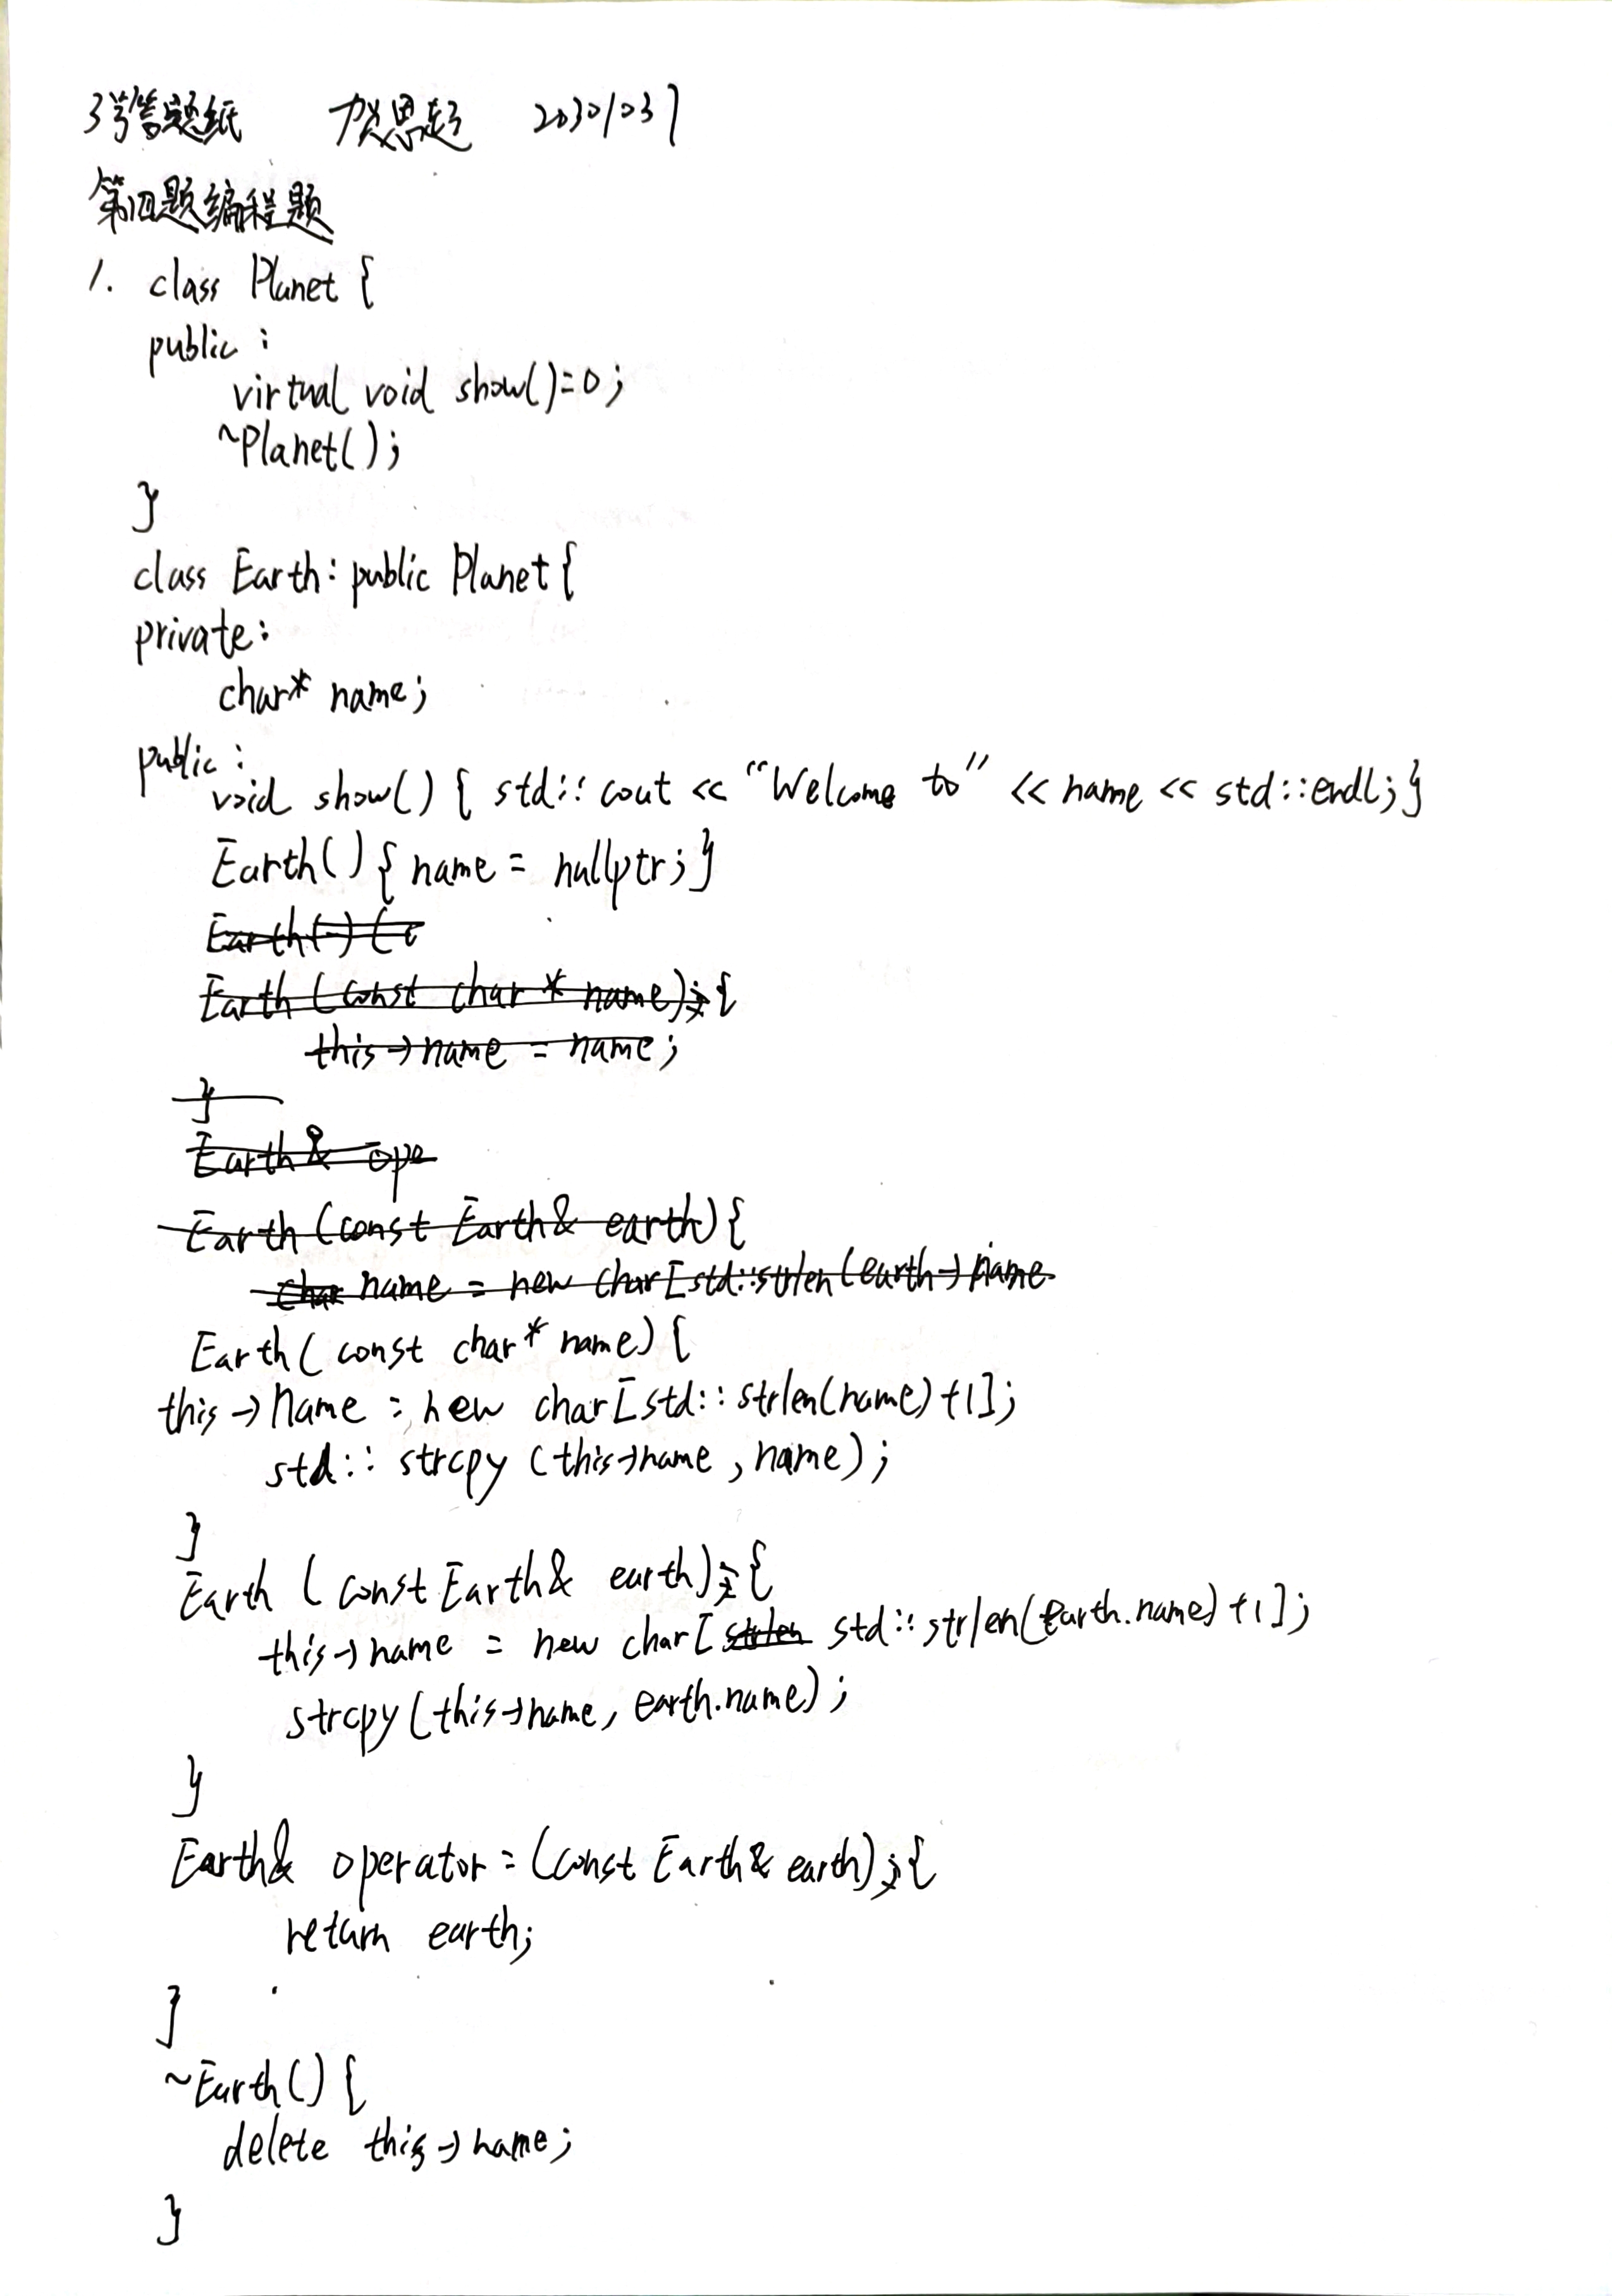 3号答题纸 贺思起 20301037
第四题编程题
1. class Planet {
public:
virtual void show()=0;
~Planet();
}
class Earth: public Planet {
private:
char* name;
public:
void show() { std::cout << "Welcome to" << name << std::endl; }
Earth() { name = nullptr; }
Earth() {c
Earth (const char * name); {
this->name = name;
}
Earth& ope
Earth (const Earth& earth) {
char name = new char[std::strlen(earth->name
Earth( const char* name) {
this->name = new char[std::strlen(name)+1];
std::strcpy (this->name, name);
}
Earth (const Earth& earth); {
this->name = new char[strlen std::strlen(earth.name)+1];
strcpy(this->name, earth.name);
}
Earth& operator=(const Earth& earth); {
return earth;
}
~Earth() {
delete this->name;
}